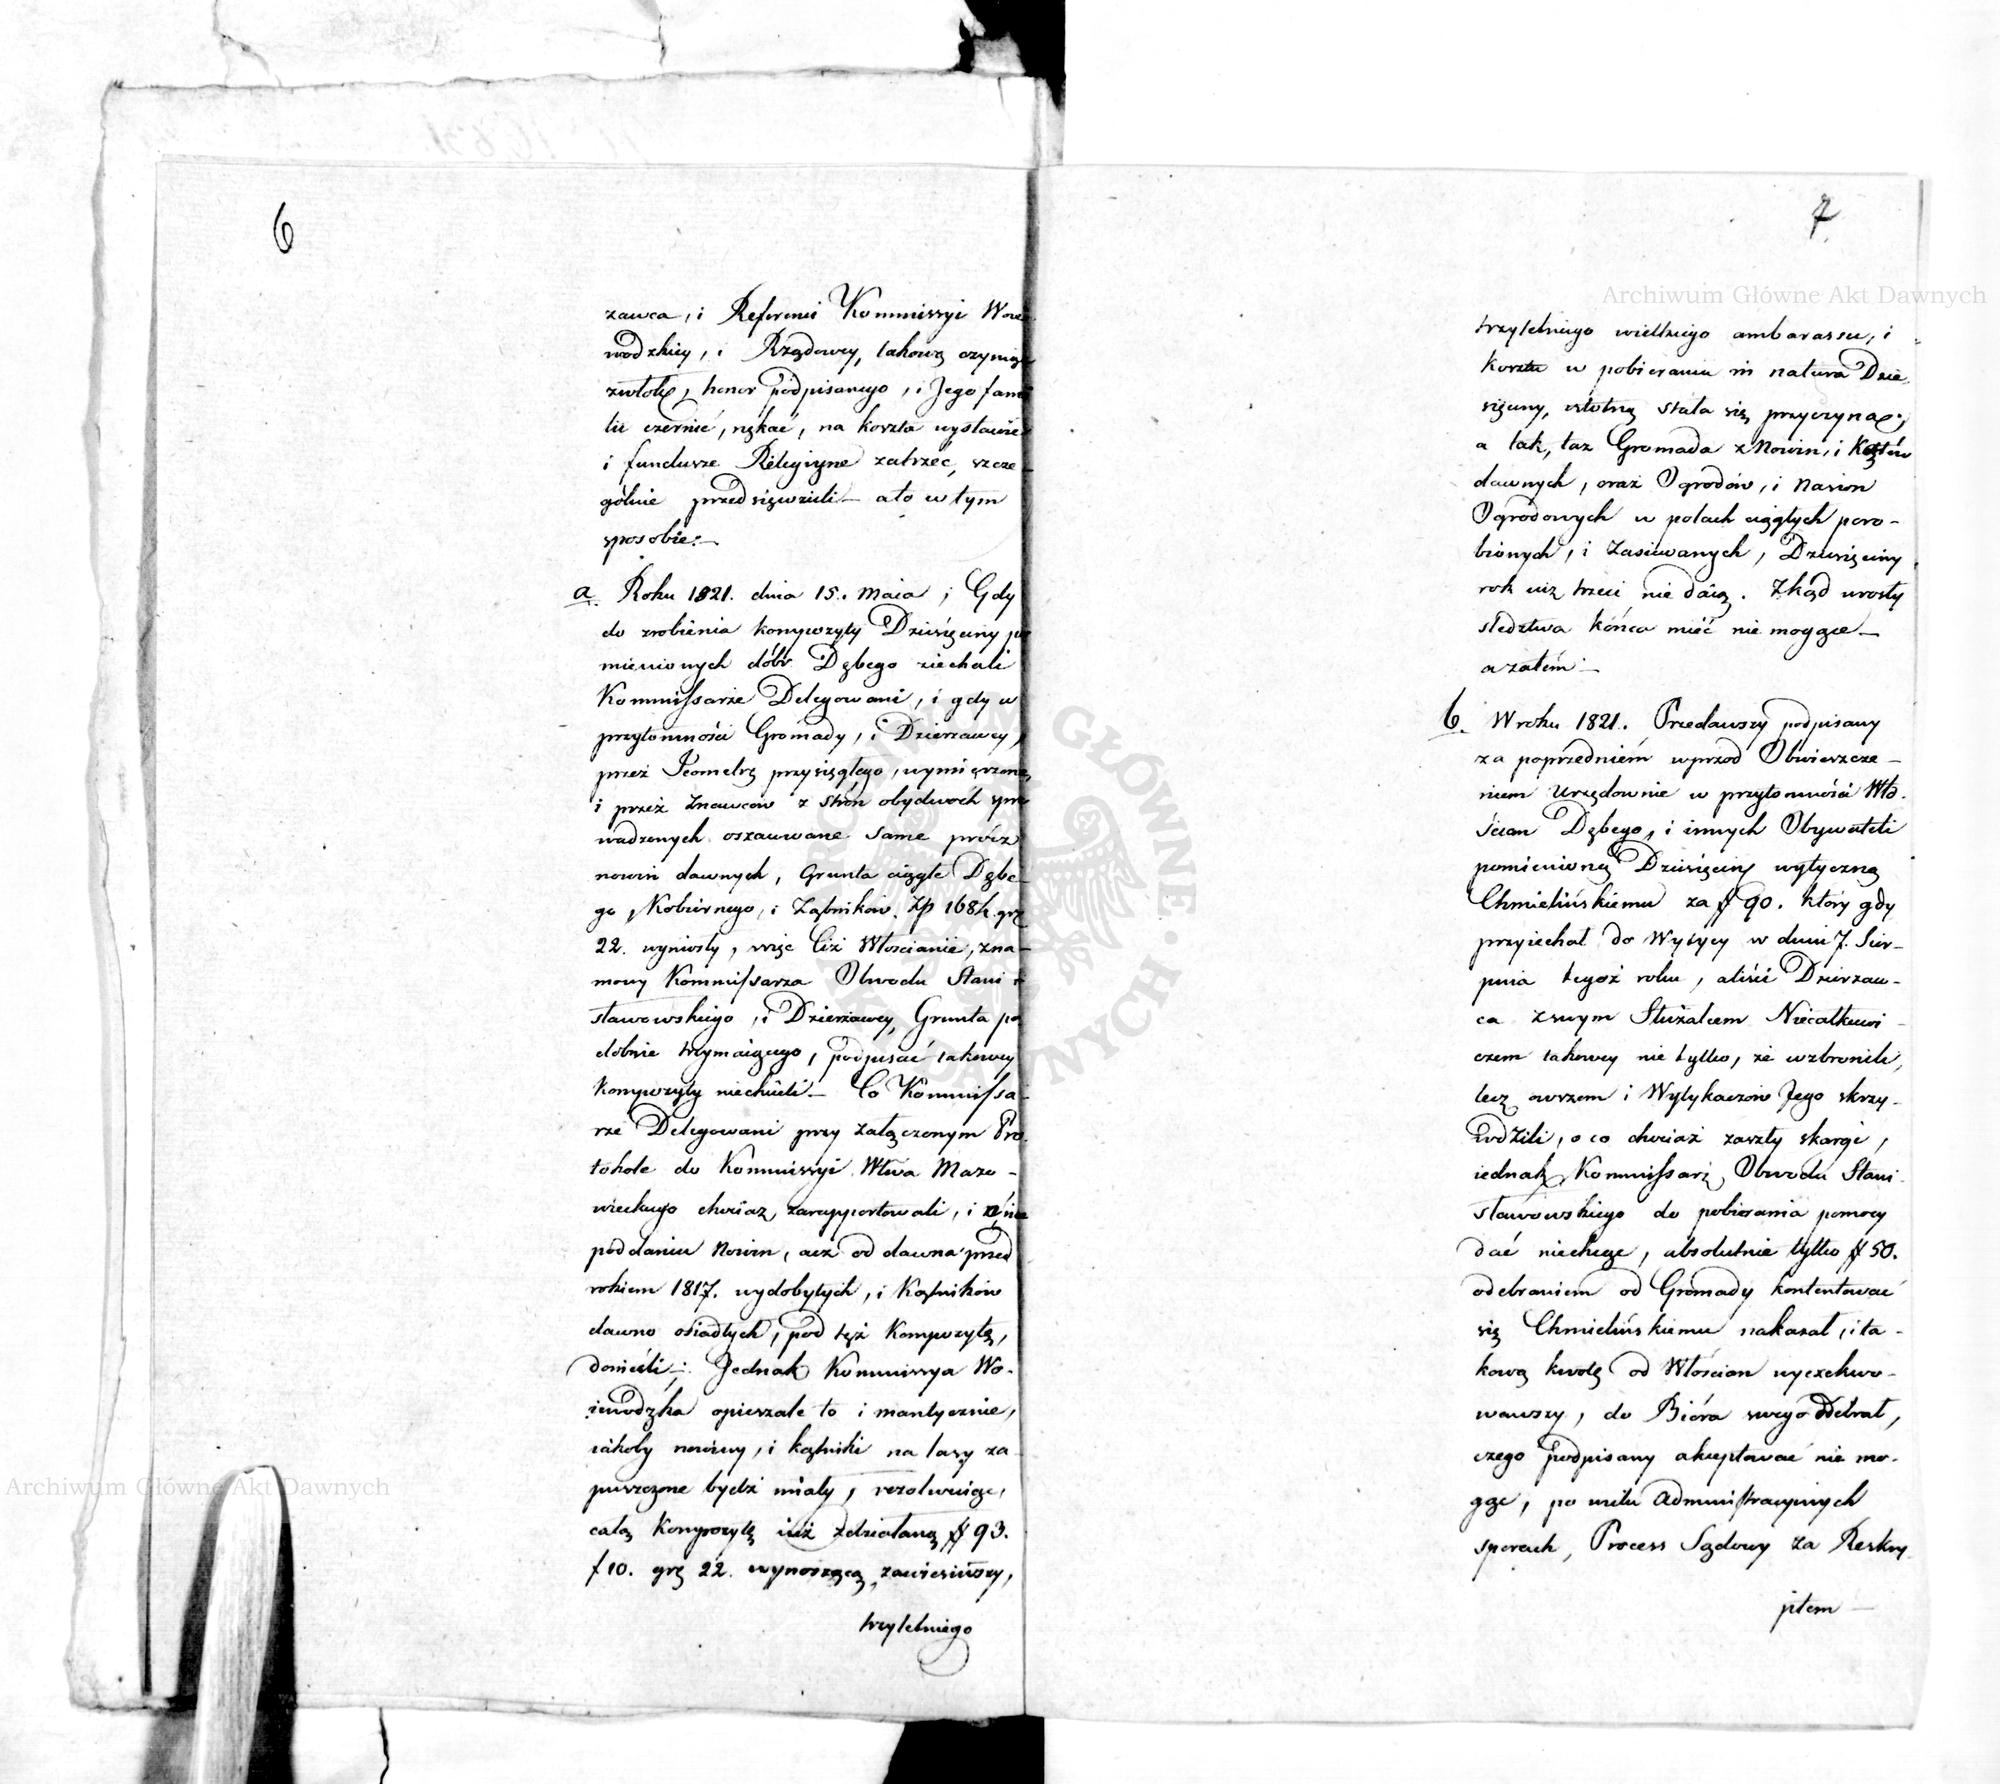 6
zawca, i Referenci Kommissyi Woie
wodzkiey, i Rządowey, takową czyniąc
zwłokę, honor podpisanego, i Jego fami
lii czernić, nękać, na koszta wystawić
i fundusze Religiyne zatrzeć, szcze-
gólnie przedsięwzieli — ato w tym
sposobie: —
a. Roku 1821. dnia 15. Maia; Gdy
do zrobienia kompozyty Dziesięciny po
mienionych dóbr Dębego ziechali
Kommissarze Delegowani, i gdy w
przytomności Gromady, i Dzierzawcy,
przez Jeometrę przysięgłego, wymierzone,
i przez Znawców z strón obydwoch spro
wadzonych oszacowane same prócz
nowin dawnych, Grunta ciągłe Dębe-
go, Kobiernego, i Kątników, Zp 1684 grz
22. wyniosły, więc ciż Włościanie, zna-
mowy Kommissarza Obwodu Stani
sławowskiego, i Dzierżawcy, Grunta po
dobnie trzymaiącego, podpisać takowey
Kompozyty niechcieli — Co Kommissa-
rze Delegowani przy załączonym Pro-
tokole do Kommissyi Wtwa Mazo-
wieckiego chociaz zarapportowali, i
poddaniu Nowin, acz od dawna przed
rokiem 1817. wydobytych, i Kątników
dawno osiadłych, pod tęż Kompozytę,
donieśli; Jednak Kommissya Wo-
iewodzka opieszale to i mantycznie,
iakoby nowiny, i kątniki na lasy za-
puszczone bydź miały, rezolwuiąc,
całą Kompozytę iuż zdziałaną # 93.
f 10. grz 22. wynoszącą, zawiesiwszy,
trzyletniego
7
trzyletniego wielkiego ambarassu, i
kosztu w pobieraniu in natura Dzie-
sięciny, istotną stała się przyczyną;
a tak, taż Gromada z Nowin, i Kątów
dawnych, oraz Ogrodów, i Nasion
Ogrodowych w polach ciągłych poro-
bionych, i Zasiewanych, Dziesięciny
rok iuż trzeci nie daią. Zkąd urosły
sledztwa końca mieć nie mogące —
a zatem: —
b. W roku 1821. Przedawszy podpisany
za poprzedniém wprzód Obwieszcze-
niem Urzędownie w przytomności Wło-
ścian Dębego, i innych Obywateli
pomienioną Dziesięcinę wytyczną
Chmielińskiemu za # 90. który gdy
przyiechał do Wytycy w dniu 7. Sier-
pnia tegoż roku, aliści Dzierzaw-
ca z swym Służalcem Niecałkiewi-
czem takowey nie tylko, że wzbronili,
lecz owszem i Wytykaczów Jego skrzy-
wdzili, o co chociaż zaszły skargi,
iednak Kommissarz Obwodu Stani-
sławowskiego do pobierania pomocy
dać niechcąc, absolutnie tylko # 50.
odebraniem od Gromady kontentować
się Chmielińskiemu nakazał, i ta-
kową kwotę od Włościan wyexekwo-
wawszy, do Bióra swego Odebrał,
czego podpisany akceptować nie mo-
gąc, po wielu Administracyinych
sporach, Process Sądowy za Reskry-
ptem —
Archiwum Główne Akt Dawnych
Archiwum Główne Akt Dawnych